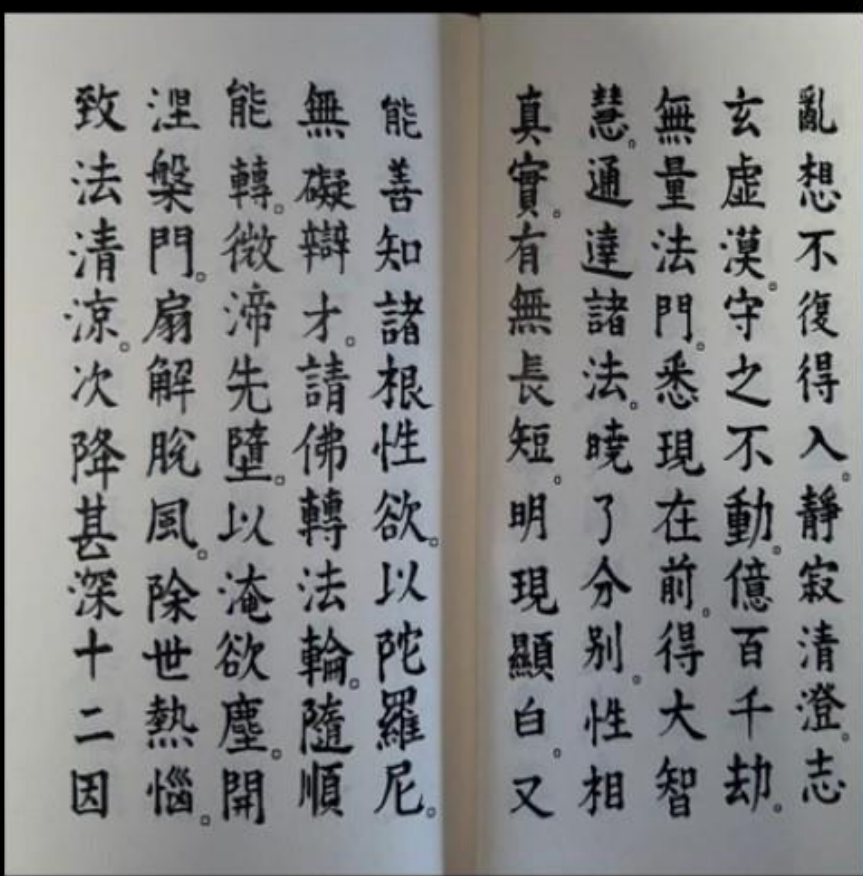 亂想不復得入。靜寂清澄。志
玄虛漠。守之不動。億百千劫。
無量法門。悉現在前。得大智
慧。通達諸法。曉了分別。性相
真實。有無長短。明現顯白。又
能善知諸根性欲。以陀羅尼。
無礙辯才。請佛轉法輪。隨順
能轉。微渧先墮。以淹欲塵。開
涅槃門。扇解脫風。除世熱惱。
致法清涼。次降甚深十二因